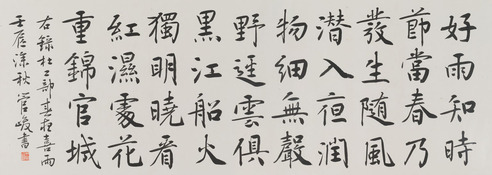 好雨知時
節當春乃
發生随風
潛入夜潤
物細無聲
野逕雲俱
黑江船火
獨明曉看
紅濕處花
重錦官城
右錄杜工部春夜喜雨
壬辰深秋管峻書